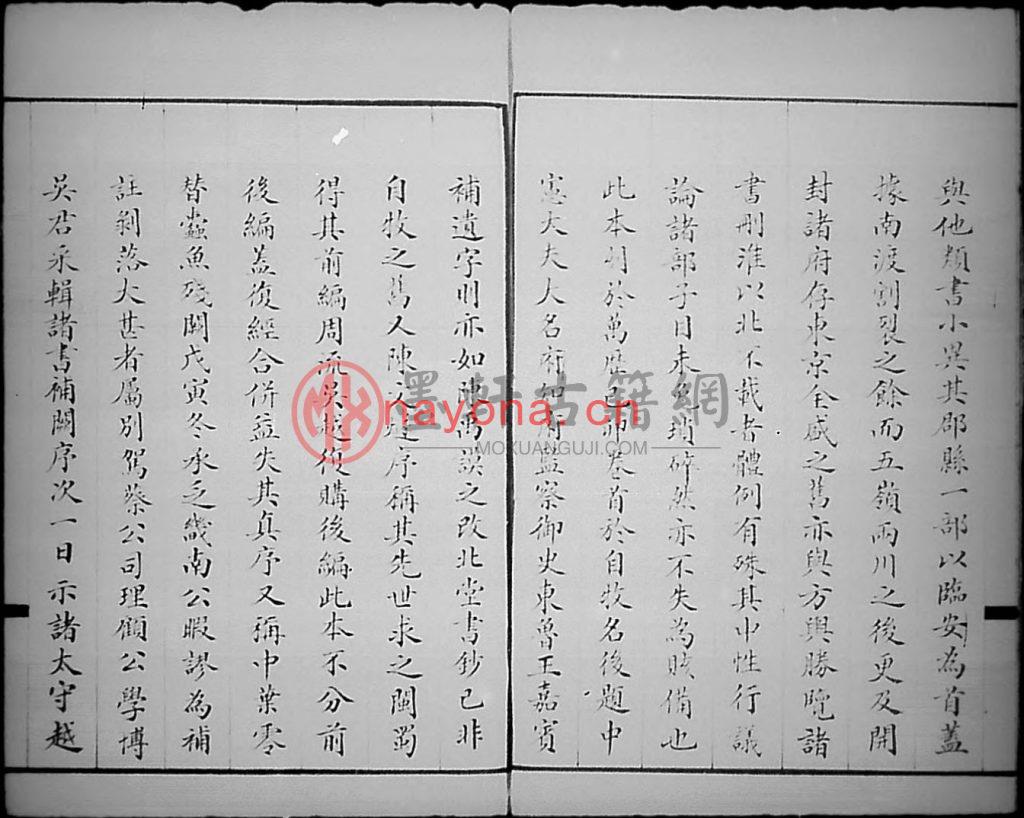 與他類書小異其郡縣一部以臨安為首蓋
據南渡割裂之餘而五嶺兩川之後更及開
封諸府存東京全盛之舊亦與方輿勝覽諸
書刪淮以北不載者體例有殊其中性行議
論諸部子目未免瑣碎然亦不失為賅備也
此本刊於萬歷己卯卷首於自牧名後題中
憲大夫大名府知府監察御史東魯王嘉賓
補遺字則亦如陳禹謨之改北堂書鈔已非
自牧之舊人陳之進序稱其先世求之閩蜀
得其前編周流吳越復購後編此本不分前
後編蓋復經合併益失其真序又稱中葉零
替蠹魚殘闕戊寅冬承乏畿南公暇謬為補
註剝落大甚者屬別駕蔡公司理顧公學博
吳君永輯諸書補闕序次一日示諸太守越
墨軒古籍網
nayona.cn
MOXUANGUJI.COM